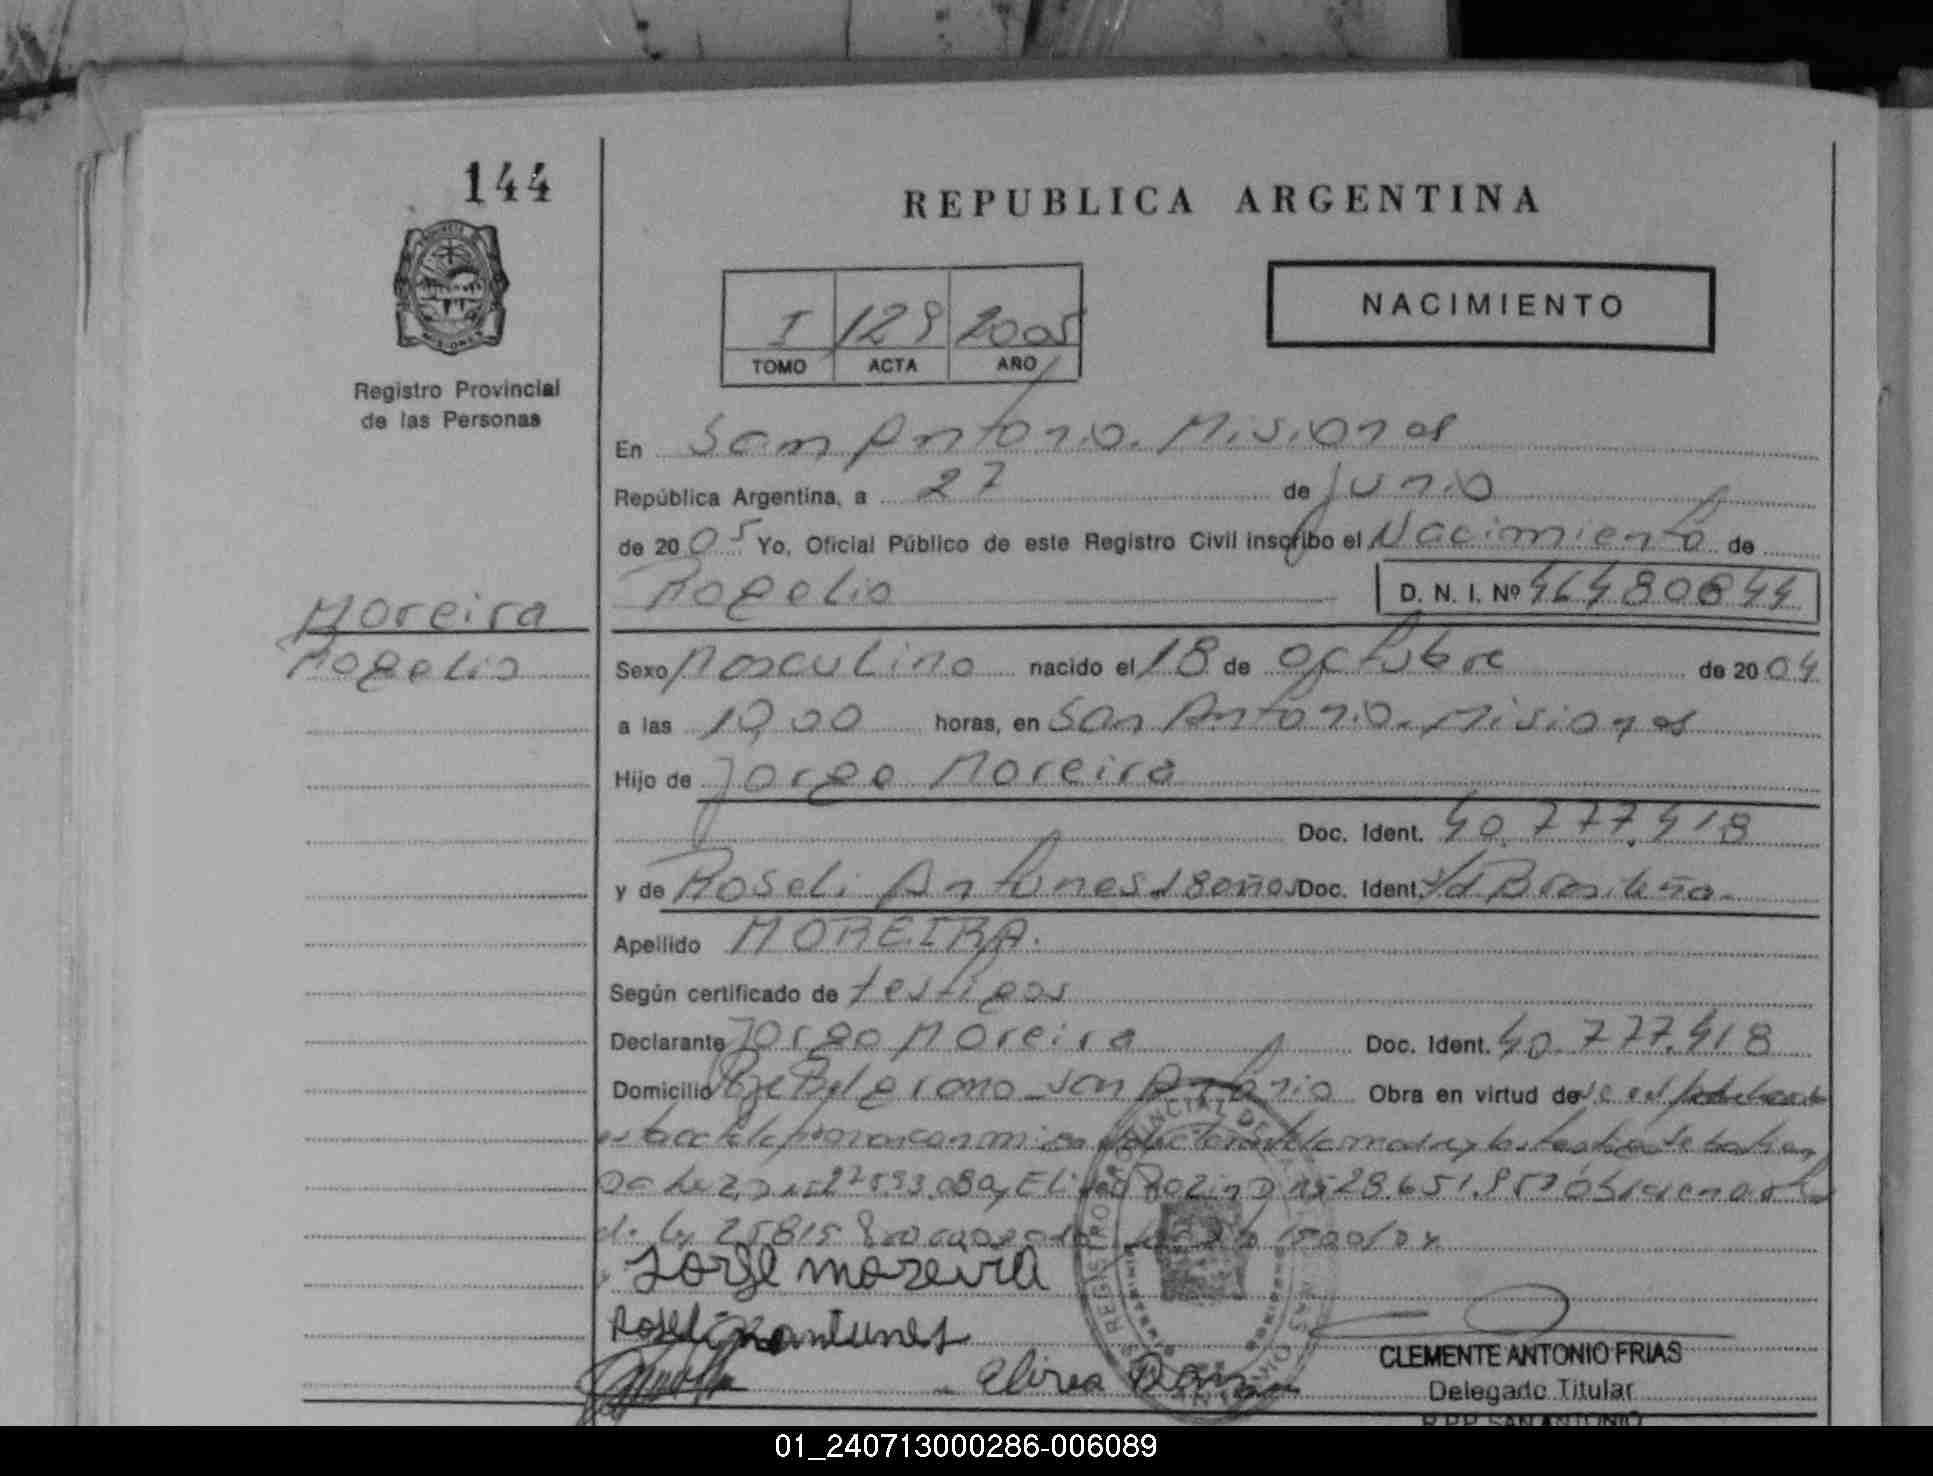 144
REPUBLICA ARGENTINA
NACIMIENTO
I 129 2005
TOMO ACTA AÑO
Registro Provincial
de las Personas
En San Antonio. Misiones
República Argentina, a 27 de junio
de 2005 Yo, Oficial Público de este Registro Civil inscribo el Nacimiento de
Rogelio D. N. I. Nº 46480844
Moreira
Rogelio
Sexo Masculino nacido el 18 de octubre de 2004
a las 10,00 horas, en San Antonio. Misiones
Hijo de Jorge Moreira
Doc. Ident. 40.777.418
y de Roseli Antunes 18 años Doc. Ident. Id Brasileña
Apellido MOREIRA.
Según certificado de testigos
Declarante Jorge Moreira Doc. Ident. 40.777.418
Domicilio Pje Belgrano San Antonio Obra en virtud de
27593.080, 28.651.857
de ley 25815
Jorge moreira
Roseli antunes
CLEMENTE ANTONIO FRIAS
Delegado Titular
R.P.P. SAN ANTONIO
01_240713000286-006089